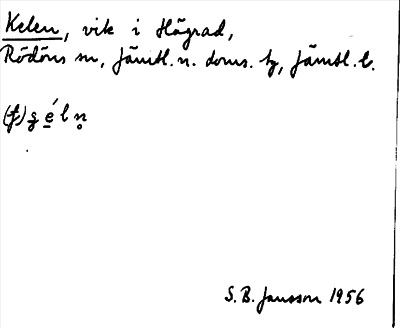 Kelen, vik i Högrad,
Rödöns sn, Jämtl. n. doms. tg, Jämtl. l.
(t)s̱ é̱ l n̥
S. B. Jansson 1956